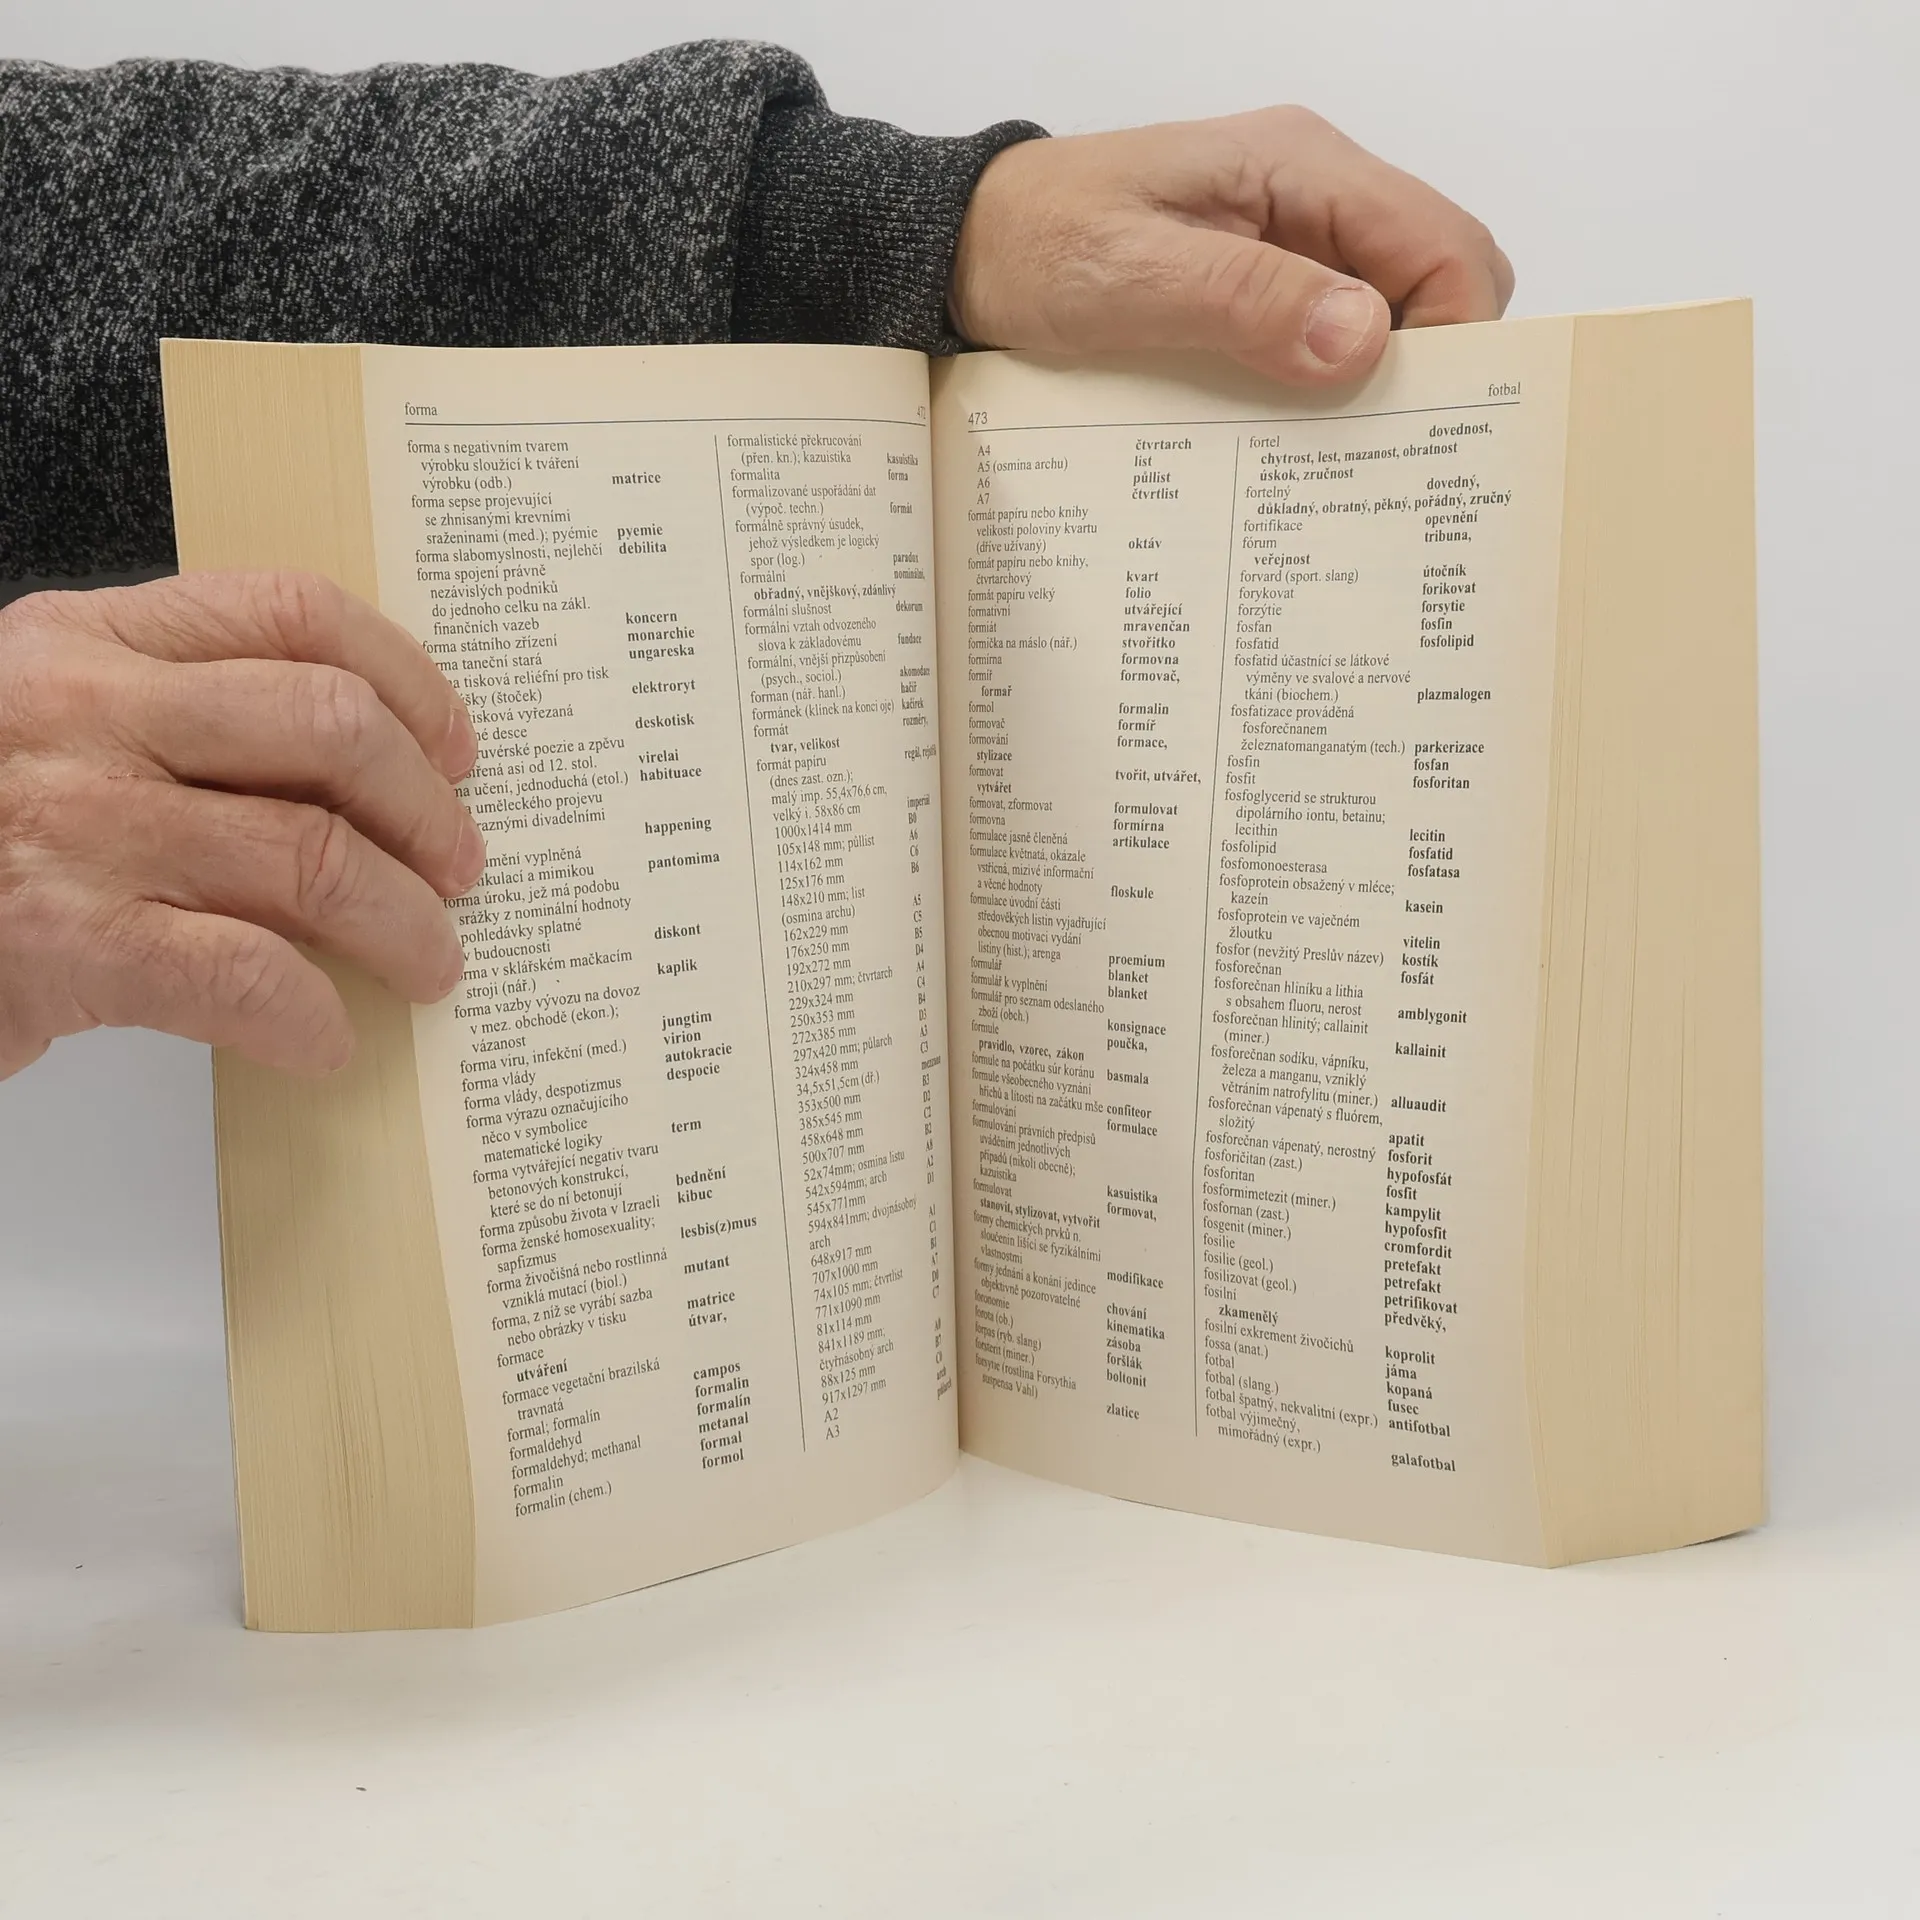 forma
forma s negativním tvarem
výrobku sloužící k tváření
výrobku (odb.) matrice
forma sepse projevující
se zhnisanými krevními
sraženinami (med.); pyémie pyemie
forma slabomyslnosti, nejlehčí debilita
forma spojení právně
nezávislých podniků
do jednoho celku na zákl.
finančních vazeb koncern
forma státního zřízení monarchie
taneční stará ungareska
tisková reliéfní pro tisk
(štoček) elektroryt
vyřezaná
desce deskotisk
poezie a zpěvu
asi od 12. stol. virelai
učení, jednoduchá (etol.) habituace
uměleckého projevu
divadelními
happening
vyplněná
a mimikou pantomima
forma úroku, jež má podobu
srážky z nominální hodnoty
pohledávky splatné
v budoucnosti diskont
v sklářském mačkacím
stroji (nář.) kaplik
forma vazby vývozu na dovoz
v mez. obchodě (ekon.);
vázanost jungtim
forma viru, infekční (med.) virion
forma vlády autokracie
forma vlády, despotizmus despocie
forma výrazu označujícího
něco v symbolice
matematické logiky term
forma vytvářející negativ tvaru
betonových konstrukcí,
které se do ní betonují bednění
forma způsobu života v Izraeli kibuc
forma ženské homosexuality;
sapfizmus lesbis(z)mus
forma živočišná nebo rostlinná
vzniklá mutací (biol.) mutant
forma, z níž se vyrábí sazba
nebo obrázky v tisku matrice
formace útvar,
utváření
formace vegetační brazilská
travnatá campos
formal; formalín formalin
formaldehyd formalín
formaldehyd; methanal metanal
formalin formal
formalin (chem.) formol
formalistické překrucování
(přen. kn.); kazuistika kasuistika
formalita forma
formalizované uspořádání dat
(výpoč. techn.) formát
formálně správný úsudek,
jehož výsledkem je logický
spor (log.) paradox
formální nominální,
obřadný, vnějškový, zdánlivý
formální slušnost dekorum
formální vztah odvozeného
slova k základovému fundace
formální, vnější přizpůsobení
(psych., sociol.) akomodace
forman (nář. hanl.) hačíř
formánek (klínek na konci oje) kačírek
formát rozměry,
tvar, velikost
formát papíru
(dnes zast. ozn.);
malý imp. 55,4x76,6 cm,
velký i. 58x86 cm imperiál
1000x1414 mm B0
105x148 mm; půllist A6
114x162 mm C6
125x176 mm B6
148x210 mm; list
(osmina archu) A5
162x229 mm C5
176x250 mm B5
192x272 mm D4
210x297 mm; čtvrtarch A4
229x324 mm C4
250x353 mm B4
272x385 mm D3
297x420 mm; půlarch A3
324x458 mm C3
34,5x51,5cm (dř.)
353x500 mm B3
385x545 mm D2
458x648 mm C2
500x707 mm B2
52x74mm; osmina listu A8
542x594mm; arch A2
545x771mm D1
594x841mm; dvojnásobný
arch A1
648x917 mm C1
707x1000 mm B1
74x105 mm; čtvrtlist A7
771x1090 mm D0
81x114 mm C7
841x1189 mm;
čtyřnásobný arch A0
88x125 mm B7
917x1297 mm C0
A2 arch
A3
473 fotbal
A4 čtvrtarch
A5 (osmina archu) list
A6 půllist
A7 čtvrtlist
formát papíru nebo knihy
velikosti poloviny kvartu
(dříve užívaný) oktáv
formát papíru nebo knihy,
čtvrtarchový kvart
formát papíru velký folio
formativní utvářející
formiát mravenčan
formička na máslo (nář.) stvořítko
formírna formovna
formíř formovač,
formař
formol formalin
formovač formíř
formování formace,
stylizace
formovat tvořit, utvářet,
vytvářet
formovat, zformovat formulovat
formovna formírna
formulace jasně členěná artikulace
formulace květnatá, okázale
vstřícná, mizivé informační
a věcné hodnoty floskule
formulace úvodní části
středověkých listin vyjadřující
obecnou motivaci vydání
listiny (hist.); arenga proemium
formulář blanket
formulář k vyplnění blanket
formulář pro seznam odeslaného
zboží (obch.) konsignace
formule poučka,
pravidlo, vzorec, zákon
formule na počátku súr koránu basmala
formule všeobecného vyznání
hříchů a lítosti na začátku mše confiteor
formulování formulace
formulování právních předpisů
uváděním jednotlivých
případů (nikoli obecně);
kazuistika kasuistika
formulovat formovat,
stanovit, stylizovat, vytvořit
formy chemických prvků n.
sloučenin lišící se fyzikálními
vlastnostmi modifikace
formy jednání a konání jedince
objektivně pozorovatelné chování
foronomie kinematika
forota (ob.) zásoba
forpas (ryb. slang) foršlák
forsterit (miner.) boltonit
forsytie (rostlina Forsythia
suspensa Vahl) zlatice
fortel dovednost,
chytrost, lest, mazanost, obratnost
úskok, zručnost
fortelný dovedný,
důkladný, obratný, pěkný, pořádný, zručný
fortifikace opevnění
fórum tribuna,
veřejnost
forvard (sport. slang) útočník
forykovat forikovat
forzýtie forsytie
fosfan fosfin
fosfatid fosfolipid
fosfatid účastnící se látkové
výměny ve svalové a nervové
tkáni (biochem.) plazmalogen
fosfatizace prováděná
fosforečnanem
železnatomanganatým (tech.) parkerizace
fosfin fosfan
fosfit fosforitan
fosfoglycerid se strukturou
dipolárního iontu, betainu;
lecithin lecitin
fosfolipid fosfatid
fosfomonoesterasa fosfatasa
fosfoprotein obsažený v mléce;
kazein kasein
fosfoprotein ve vaječném
žloutku vitelin
fosfor (nevžitý Preslův název) kostík
fosforečnan fosfát
fosforečnan hliníku a lithia
s obsahem fluoru, nerost amblygonit
fosforečnan hlinitý; callainit
(miner.) kallainit
fosforečnan sodíku, vápníku,
železa a manganu, vzniklý
větráním natrofylitu (miner.) alluaudit
fosforečnan vápenatý s fluórem,
složitý apatit
fosforečnan vápenatý, nerostný fosforit
fosforičitan (zast.) hypofosfát
fosforitan fosfit
fosformimetezit (miner.) kampylit
fosfornan (zast.) hypofosfit
fosgenit (miner.) cromfordit
fosilie pretefakt
fosilie (geol.) petrefakt
fosilizovat (geol.) petrifikovat
fosilní předvěký,
zkamenělý
fosilní exkrement živočichů koprolit
fossa (anat.) jáma
fotbal kopaná
fotbal (slang.) fusec
fotbal špatný, nekvalitní (expr.) antifotbal
fotbal výjimečný,
mimořádný (expr.) galafotbal